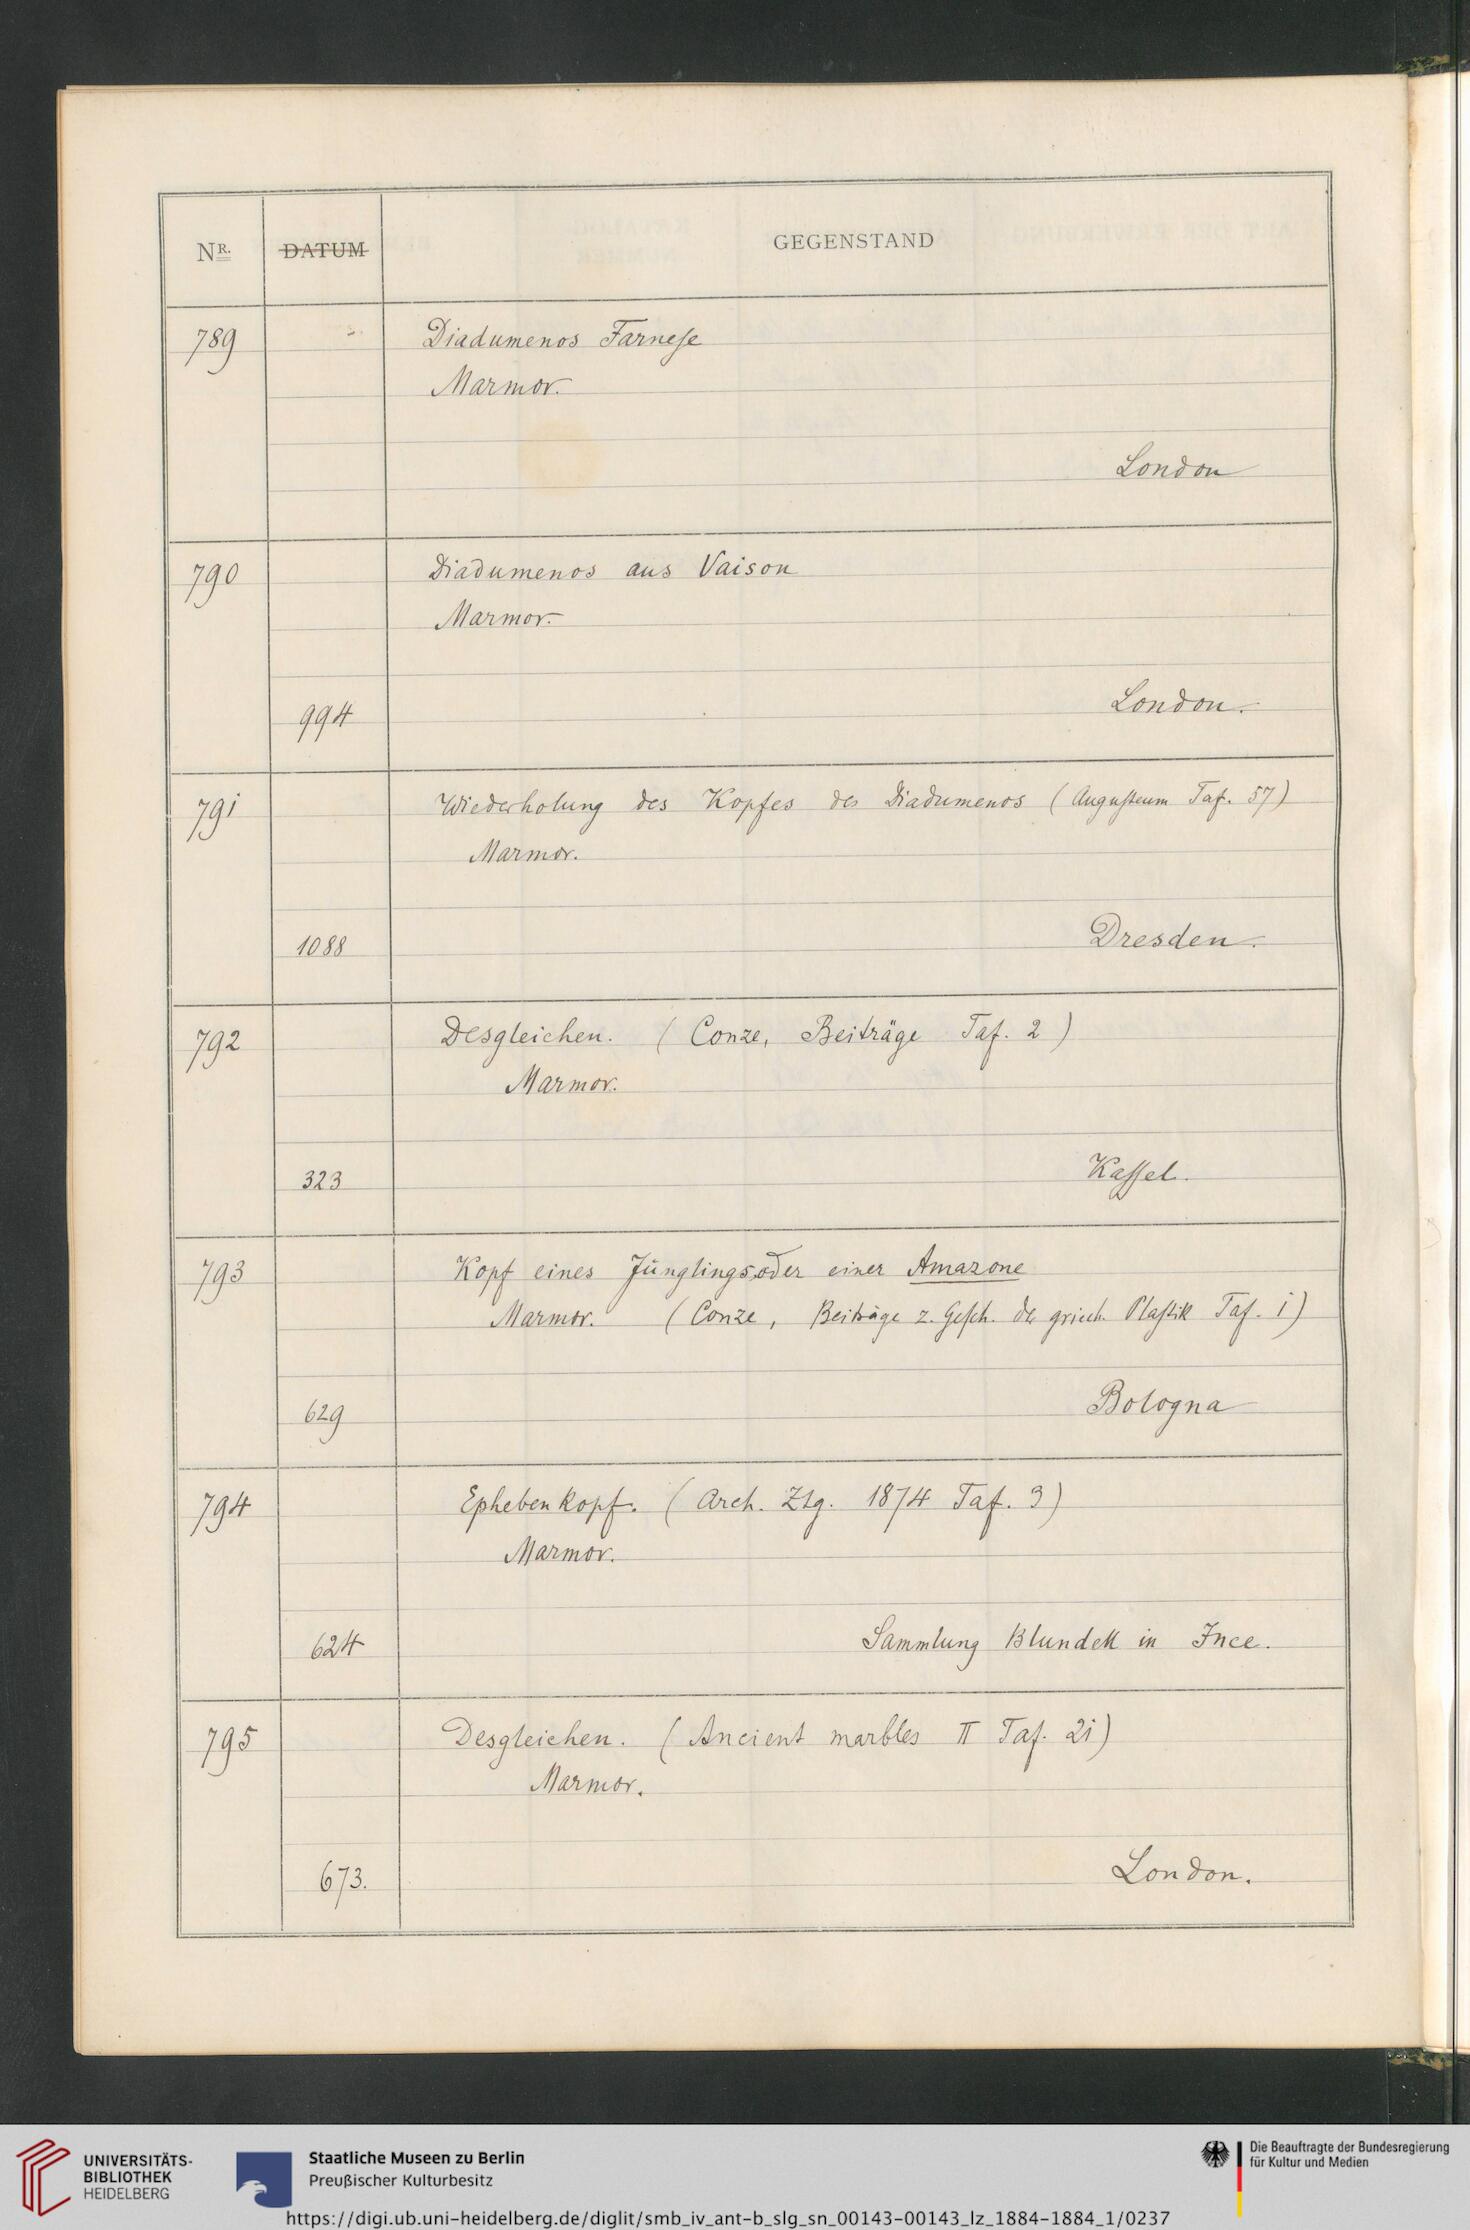 NR. DATUM GEGENSTAND
789 Diadumenos Farneſe
Marmor.
London
790 Diadumenos aus Vaison
Marmor.
994 London.
791 Wiederholung des Kopfes des Diadumenos (Auguſteum Taf. 57)
Marmor.
1088 Dresden.
792 Desgleichen. (Conze, Beiträge Taf. 2)
Marmor.
323 Kaſſel.
793 Kopf eines Jünglings oder einer Amazone
Marmor. (Conze, Beiträge z. Geſch. der griech. Plaſtik Taf. 1)
629 Bologna
794 Ephebenkopf. (Arch. Ztg. 1874 Taf. 3)
Marmor.
624 Sammlung Blundell in Ince.
795 Desgleichen. (Ancient marbles II Taf. 21)
Marmor.
673. London.
UNIVERSITÄTS-
BIBLIOTHEK
HEIDELBERG
Staatliche Museen zu Berlin
Preußischer Kulturbesitz
Die Beauftragte der Bundesregierung
für Kultur und Medien
https://digi.ub.uni-heidelberg.de/diglit/smb_iv_ant-b_slg_sn_00143-00143_lz_1884-1884_1/0237